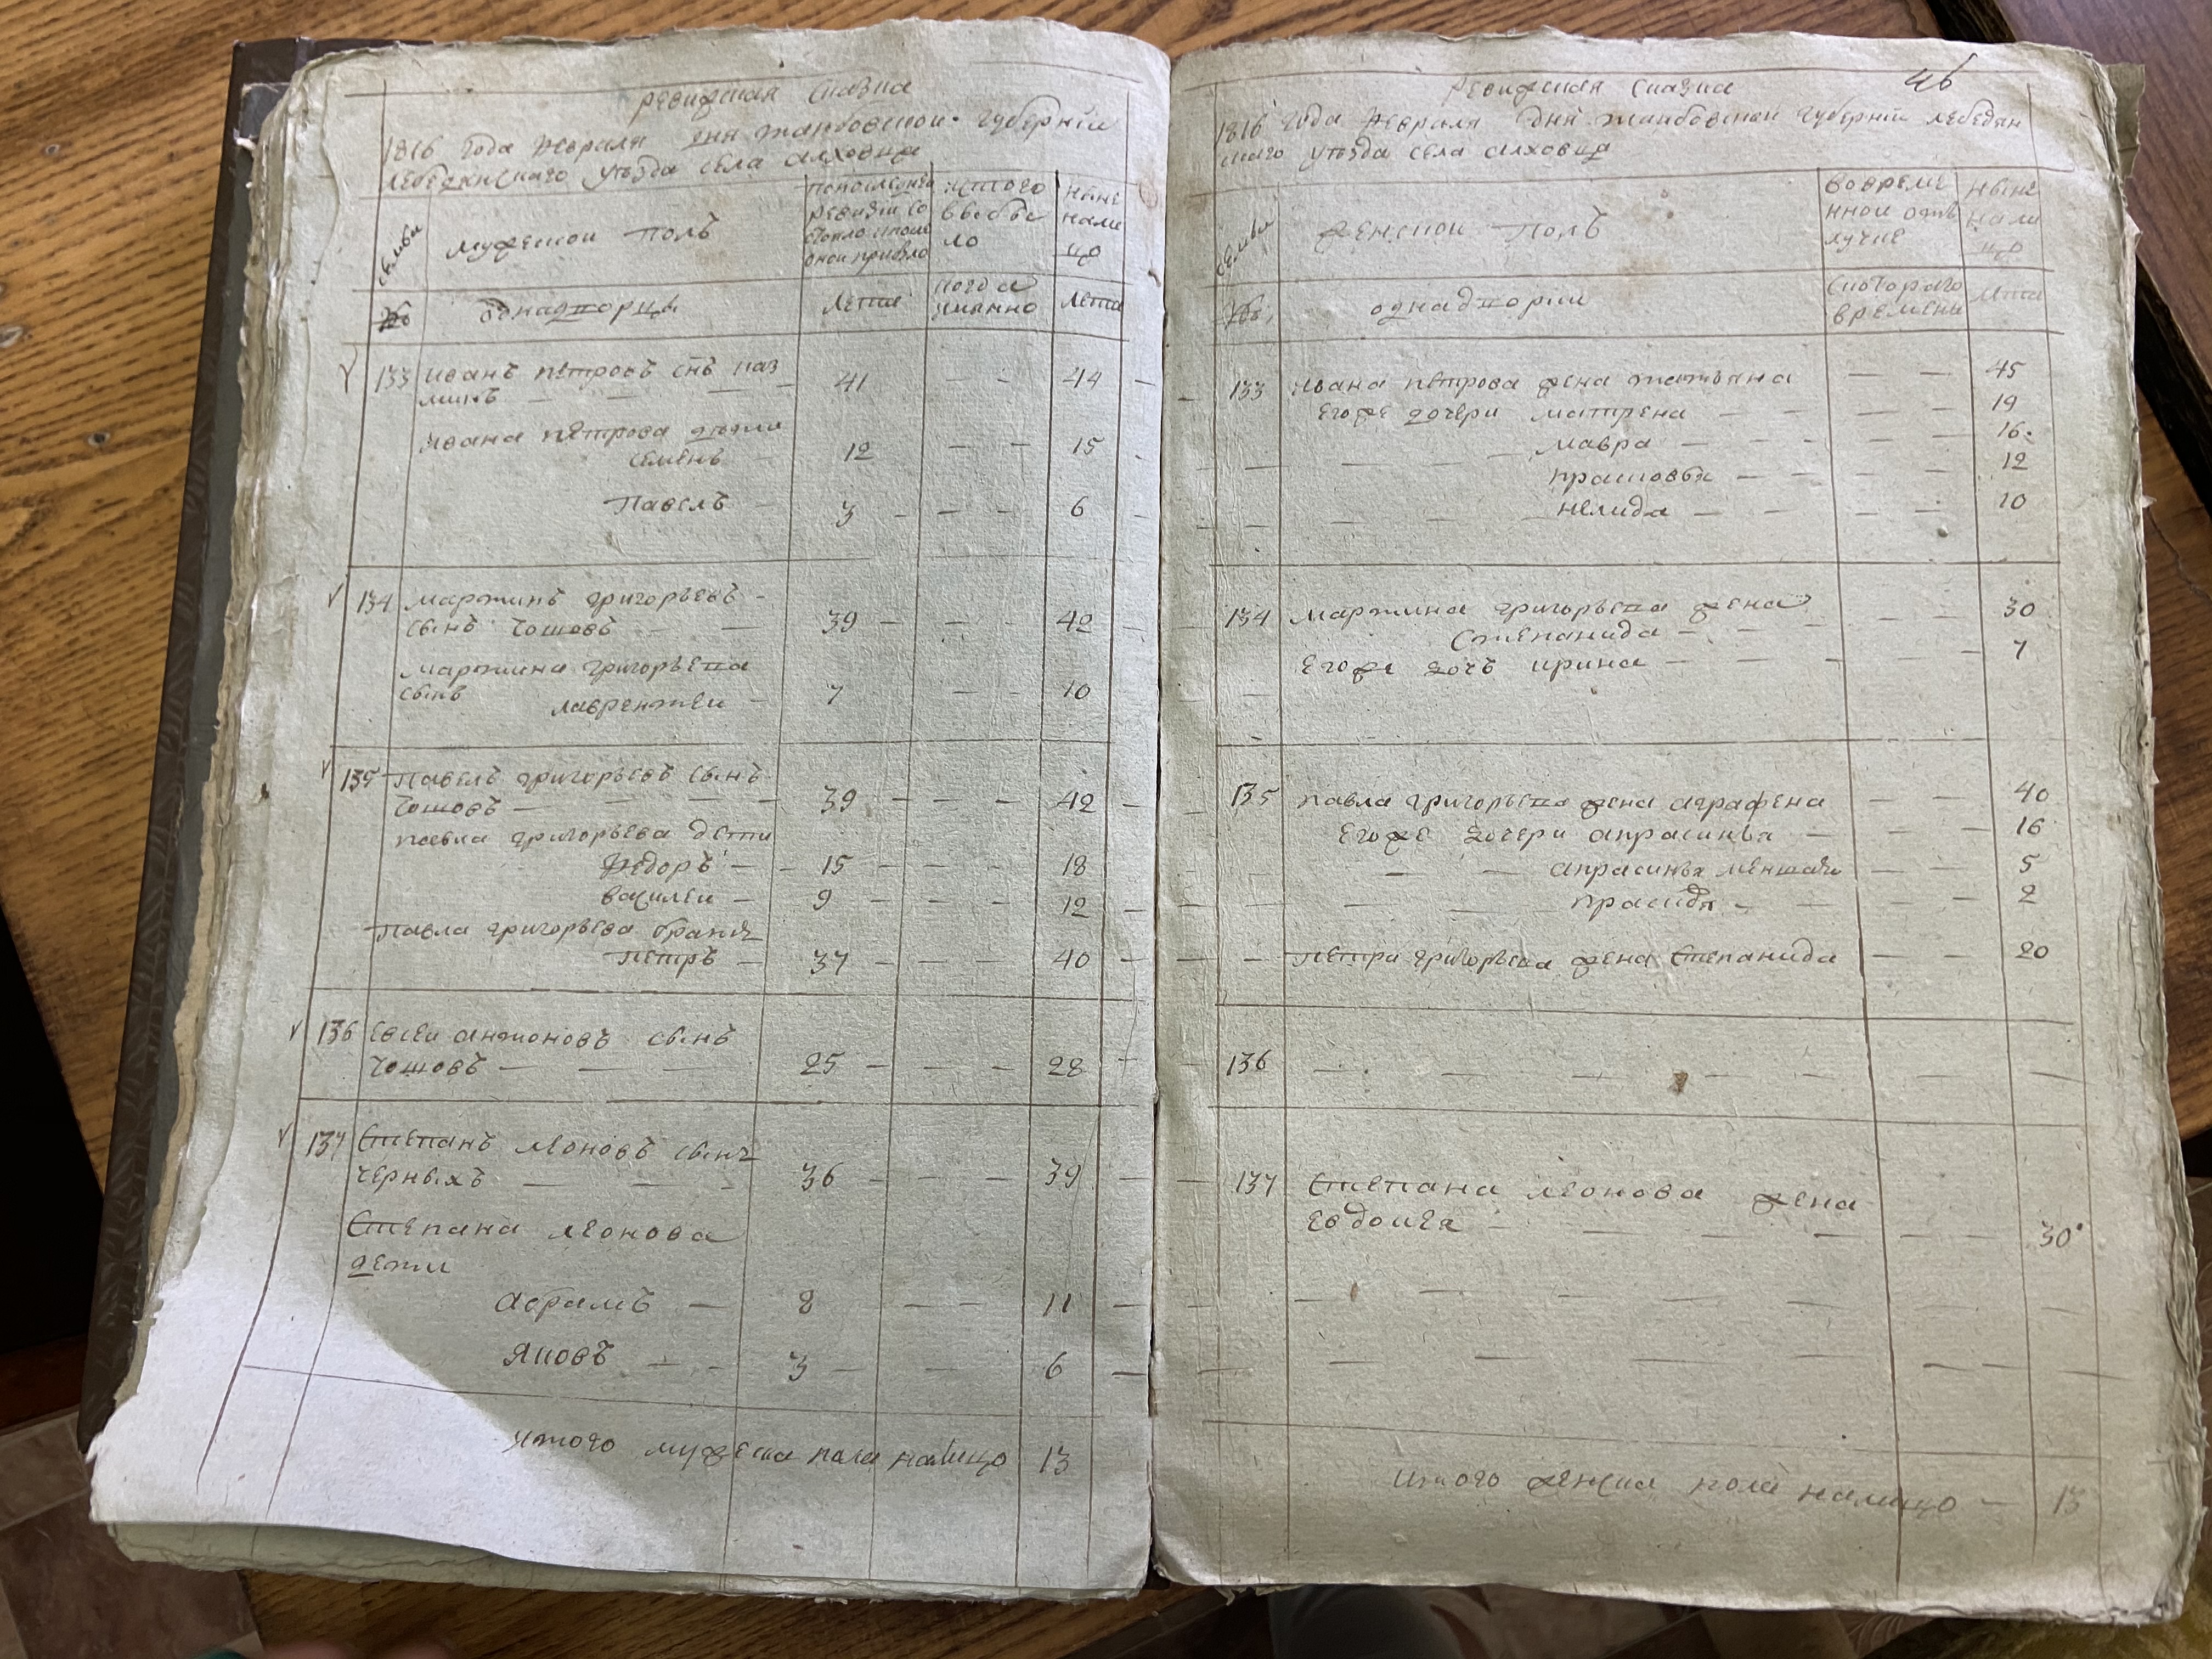 ревижская сказка
1816 года февраля дня танбовской губерніи
лебедянскаго уезда села алховца
семьи
мужескои полъ
попоследнеи
ревизіи со
стояло ипосле
онои прибыло
изтого
ввобы
ло
ныне
нали
цо
№
однадворцы
лета
когда
имянно
лета
133 иванъ петровъ снъ каз
минъ — — — 41 — — 44 —
ивана петрова дѣти
семенъ — 12 — — 15
Павелъ — 3 — — — 6
134 мартинъ григорьевъ —
сынъ чошовъ — — 39 — — — 42 —
мартина григорьева
сынъ
лаврентеи — 7 — — 10
135 павелъ григорьевъ сынъ
чошовъ — — — — 39 — — — 42 —
павла григорьева дети
федоръ — — 15 — — — 18
василеи — 9 — — — 12 —
павла григорьева братъ
петръ — 37 — — — 40 —
136 евсеи антоновъ сынъ
чошовъ — — — 25 — — — 28 —
137 Степанъ леоновъ сынъ
черныхъ — — — 36 — — — 39 —
Степана леонова
дети
аврамъ — 8 — — 11 —
яковъ — — 3 — — 6 —
итого мужеска пола налицо 13
46
ревижская сказка
1816 года февраля дня танбовской губерніи лебедян
скаго уезда села алховца
семьи
женскои полъ
вовреме
ннои отъ
лучке
ныне
нали
цо
№
однадворки
скотораго
времени
лета
133 ивана петрова жена татьяна — — 45
егоже дочери матрена — — — 19
мавра — — — — 16
прасковья — — — — 12
нелида — — — — 10
134 мартина григорьева жена 30
степанида — — — — —
егоже дочь ирина — — 7
135 павла григорьева жена аграфена — — 40
егоже дочери апрасинья — — — 16
апрасинья меншая — — 5
— — — — 2
петра григорьева жена степанида — — 20
136 — — — — — — —
137 Степана леонова жена
евдокея — — — — — — 30
итого женска пола налицо — 13